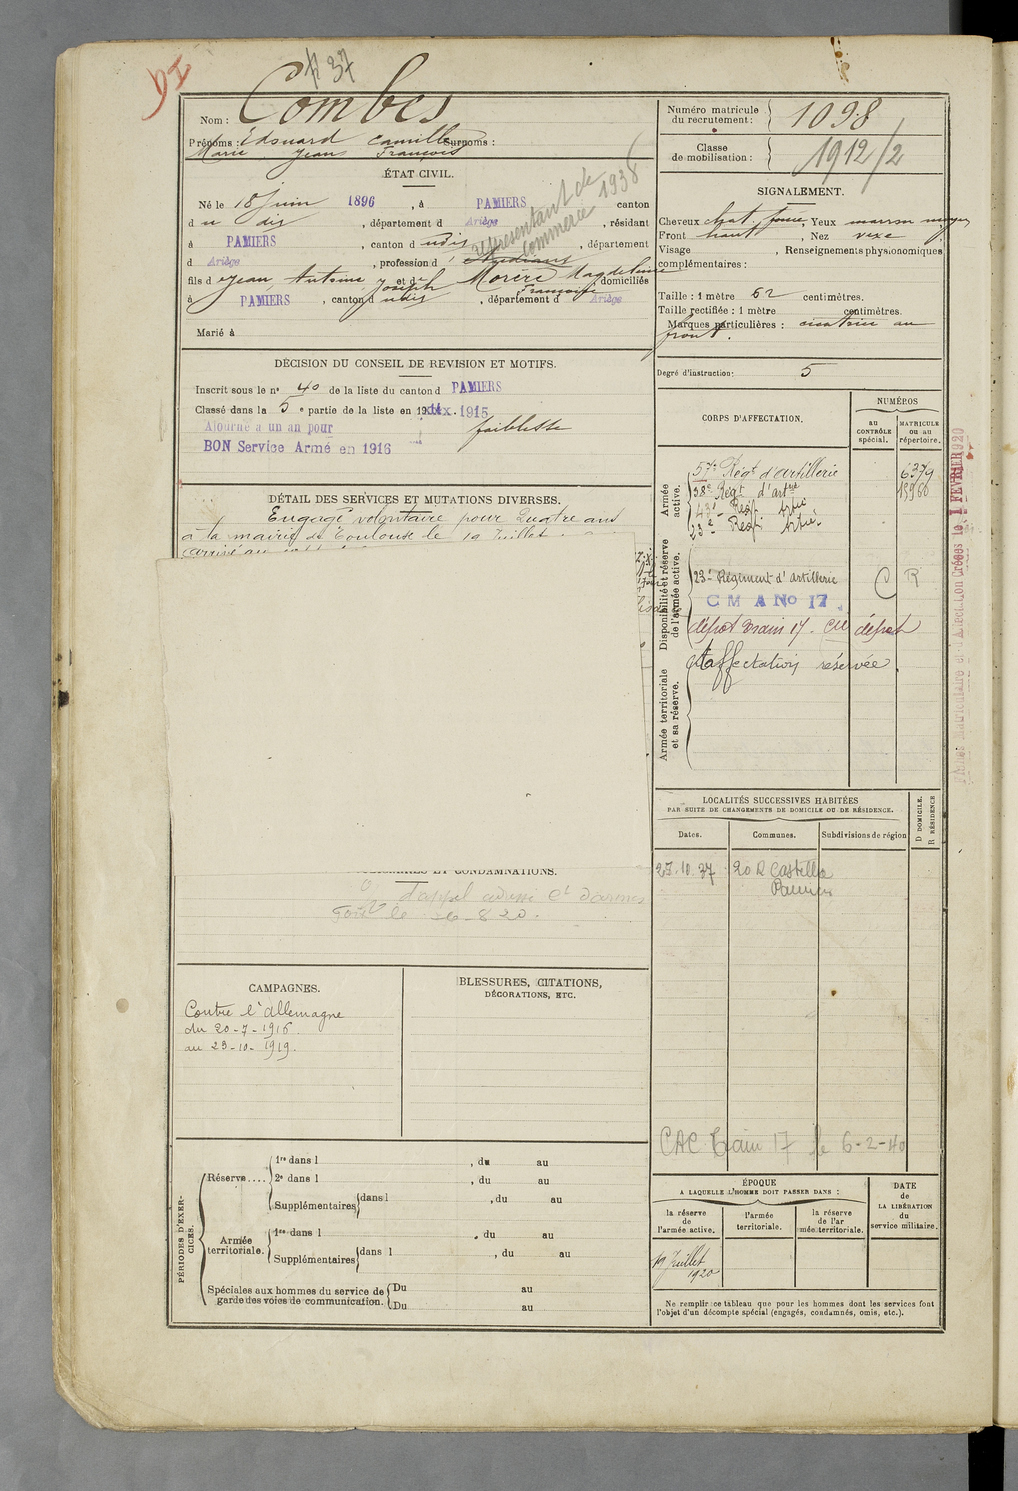 DI
# 37
Nom : Combes
Prénoms : Edouard Camille Surnoms :
Marie Jean François
ÉTAT CIVIL.
Né le 18 Juin 1896, à PAMIERS canton
d u dis, département d Ariège, résidant
à PAMIERS, canton d udis, département
d Ariège, profession d' étudiant
représentant de commerce 1938
fils d Jean, Antoine, Joseph et de Morère Magdeleine Françoise domiciliés
à PAMIERS, canton d udis, département d Ariège
Marié à
DÉCISION DU CONSEIL DE REVISION ET MOTIFS.
Inscrit sous le n° 40 de la liste du canton d PAMIERS
Classé dans la 5 e partie de la liste en 19 1915
Ajourné à un an pour faiblesse
BON Service Armé en 1916
DÉTAIL DES SERVICES ET MUTATIONS DIVERSES.
Engagé volontaire pour quatre ans
à la mairie de Toulouse le 19 Juillet
arrivé au
ET CONDAMNATIONS.
d'appel
le 26-8 20.
CAMPAGNES.
Contre l'Allemagne
du 20-7-1916.
au 23-10-1919.
BLESSURES, CITATIONS,
DÉCORATIONS, ETC.
PÉRIODES D'EXERCICES.
Réserve....
1re dans l , du au
2e dans l , du au
Supplémentaires dans l , du au
Armée territoriale.
1re dans l , du au
Supplémentaires dans l , du au
Spéciales aux hommes du service de garde des voies de communication.
Du au
Du au
Numéro matricule du recrutement : 1098
Classe de mobilisation : 1912/2
SIGNALEMENT.
Cheveux chat. foncé, Yeux marron moyen
Front haut, Nez vexe
Visage , Renseignements physionomiques
complémentaires :
Taille : 1 mètre 62 centimètres.
Taille rectifiée : 1 mètre centimètres.
Marques particulières : cicatrice au
front.
Degré d'instruction : 5
CORPS D'AFFECTATION.
NUMÉROS
au CONTRÔLE spécial.
MATRICULE ou au répertoire.
Armée active.
57e Régt d'artillerie 6379
38e Régt d'artrie 15960
43e
23e
Disponibilité et réserve de l'armée active.
23e Régiment d'artillerie C R
C M A No 17
dépôt train 17. CM dépôt
Armée territoriale et sa réserve.
affectation réservée.
1 FEVRIER 1920
LOCALITÉS SUCCESSIVES HABITÉES
PAR SUITE DE CHANGEMENTS DE DOMICILE OU DE RÉSIDENCE.
Dates.
Communes.
Subdivisions de région
D DOMICILE.
R RÉSIDENCE
27.10.37 20 R Castella
Pamiers
CAC Train 17 le 6-2-40
ÉPOQUE
A LAQUELLE L'HOMME DOIT PASSER DANS :
la réserve de l'armée active.
l'armée territoriale.
la réserve de l'armée territoriale.
DATE de LA LIBÉRATION du service militaire.
19 Juillet
1920
Ne remplir ce tableau que pour les hommes dont les services font
l'objet d'un décompte spécial (engagés, condamnés, omis, etc.).